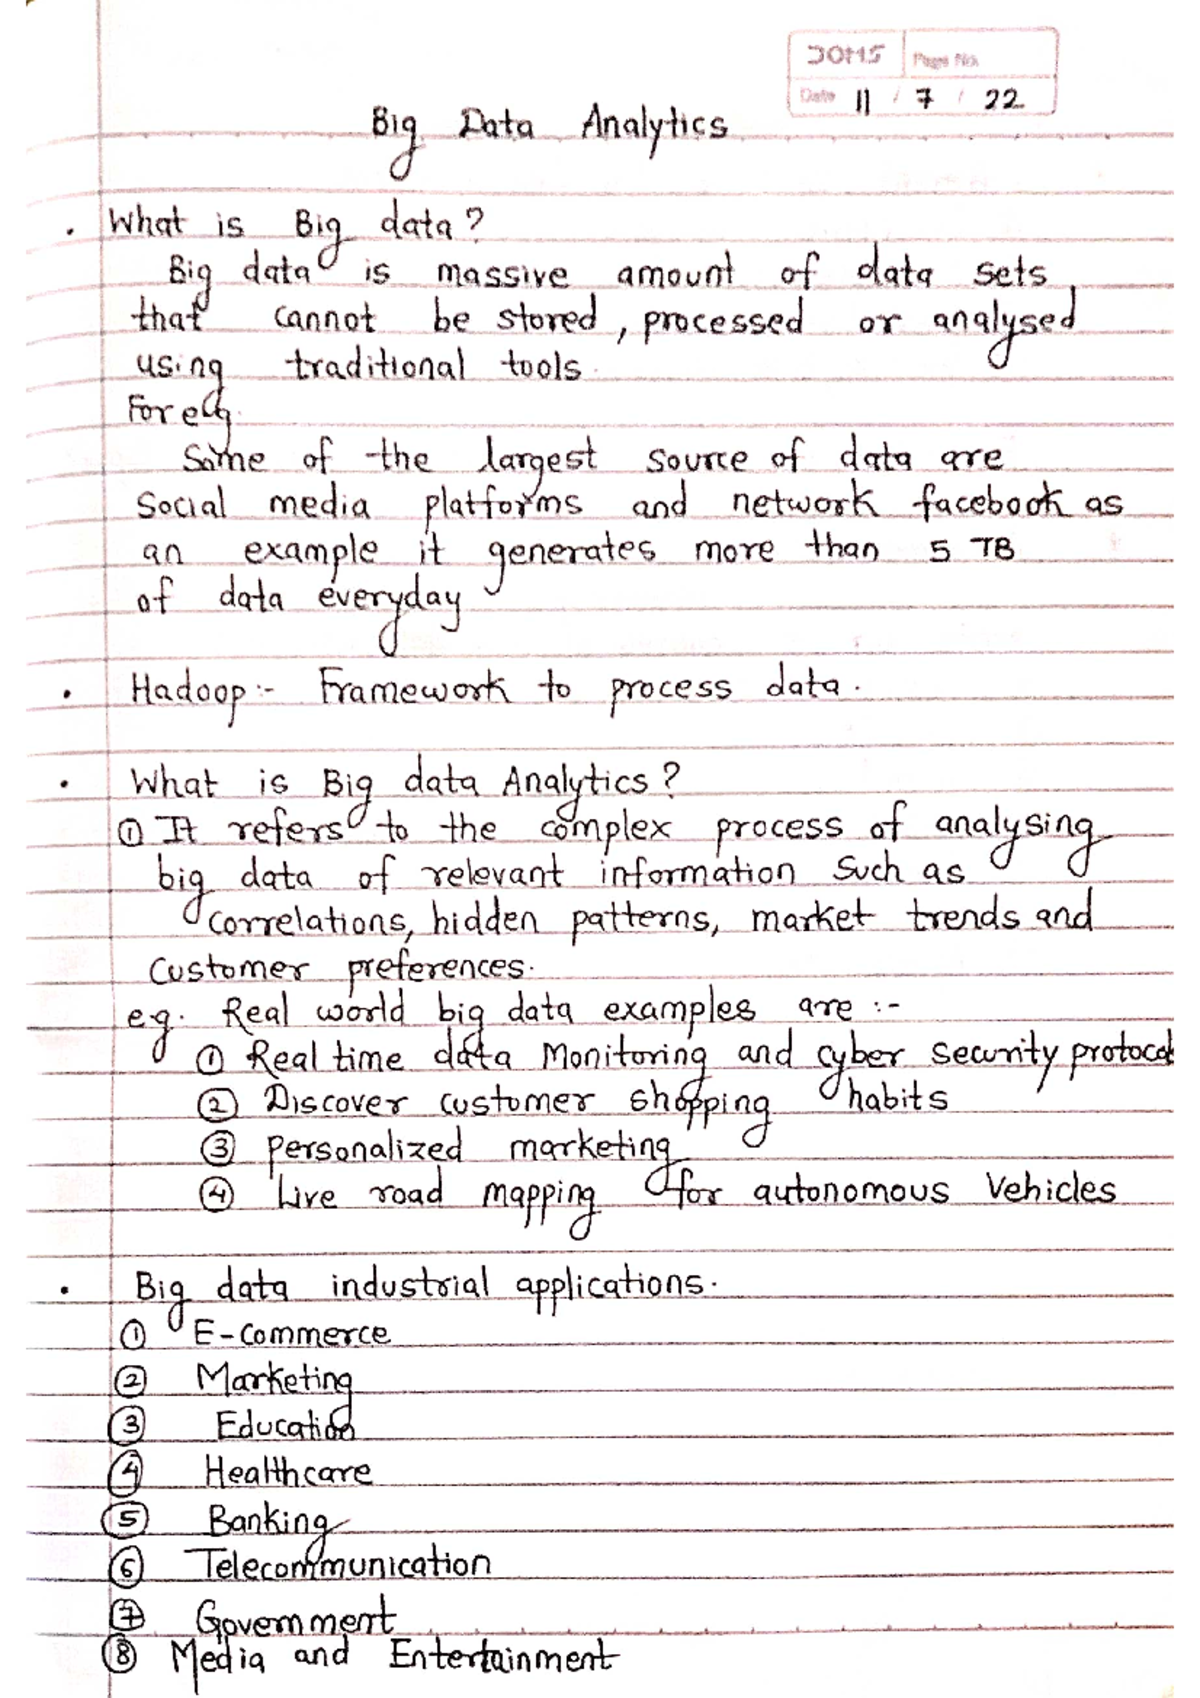 DOMS Page No.
Date 11 / 7 / 22
Big Data Analytics
. What is Big data?
Big data is massive amount of data sets
that cannot be stored, processed or analysed
using traditional tools.
For eg.
Some of the largest source of data are
Social media platforms and network facebook as
an example it generates more than 5 TB
of data everyday
. Hadoop:- Framework to process data.
. What is Big data Analytics?
① It refers to the complex process of analysing
big data of relevant information Such as
correlations, hidden patterns, market trends and
Customer preferences.
eg. Real world big data examples are :-
① Real time data Monitoring and cyber Security protocol
② Discover customer shopping habits
③ personalized marketing
④ Live road mapping for autonomous Vehicles
. Big data industrial applications.
① E-Commerce
② Marketing
③ Education
④ Healthcare
⑤ Banking
⑥ Telecommunication
⑦ Government
⑧ Media and Entertainment